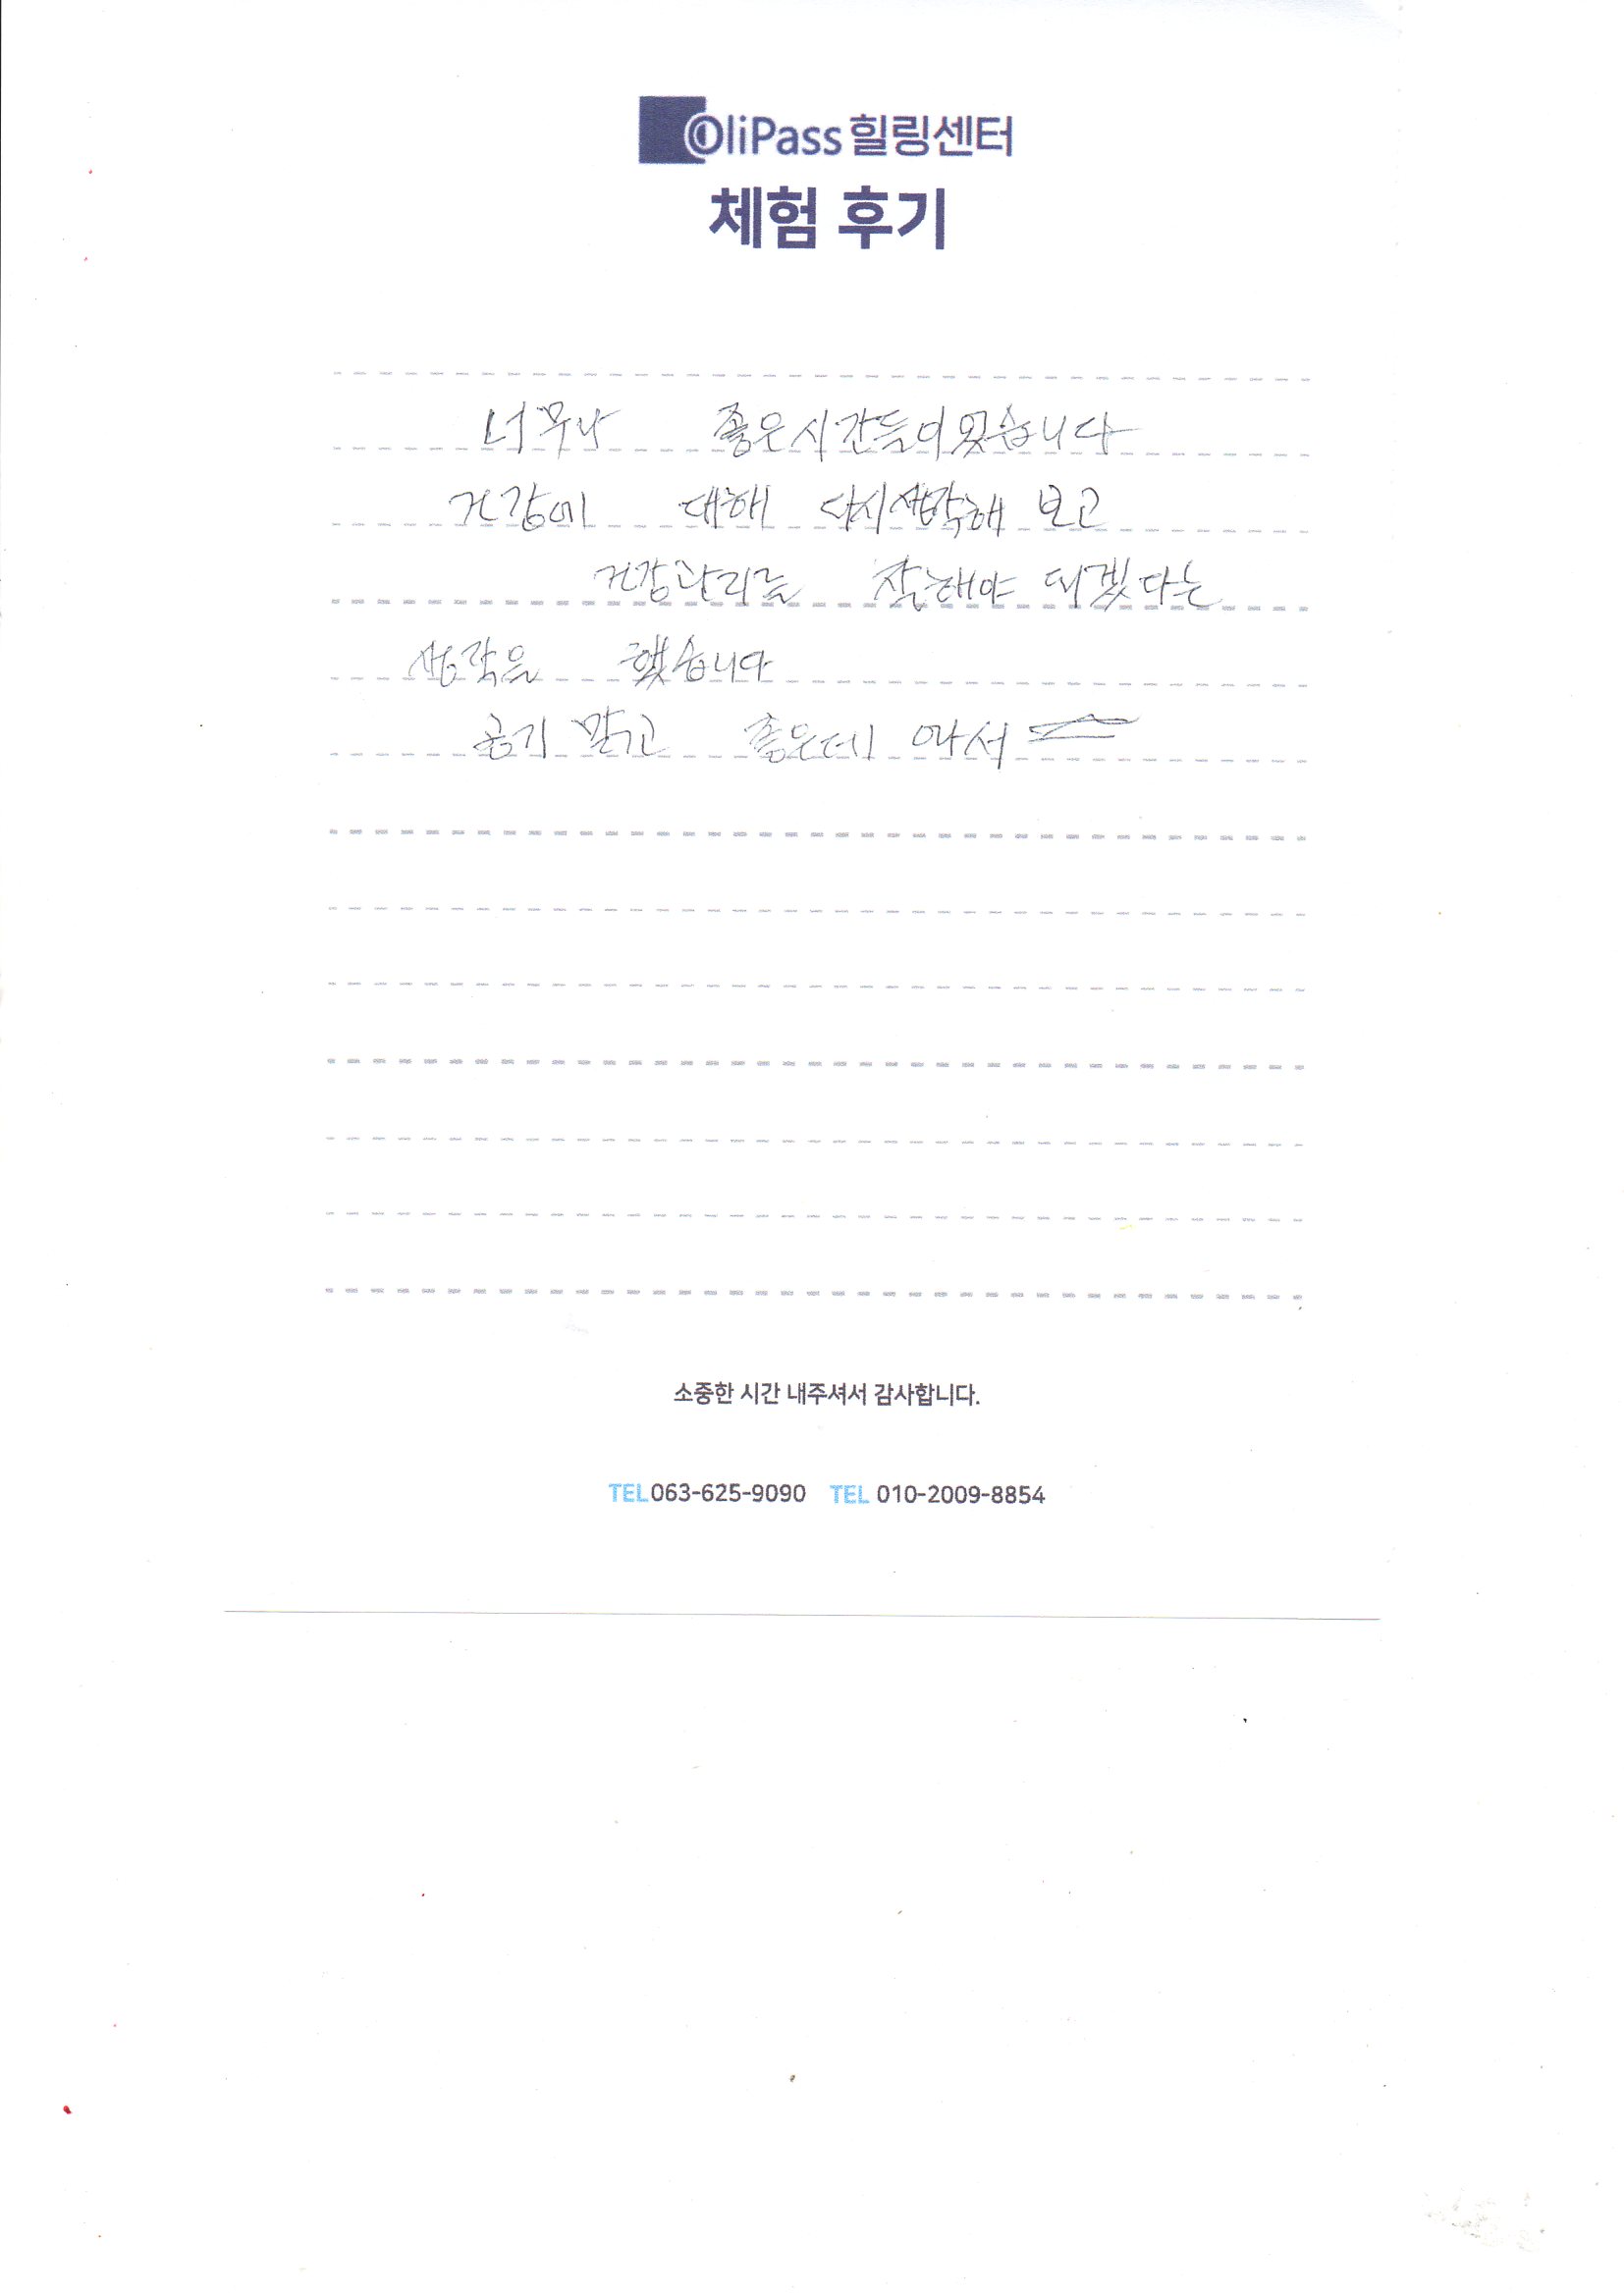 OliPass 힐링센터
체험 후기
너무나 좋은시간들이였습니다
건강에 대해 다시생각해 보고
건강관리를 잘해야 되겠다는
생각을 했습니다
공기 맑고 좋은데 와서
소중한 시간 내주셔서 감사합니다.
TEL 063-625-9090 TEL 010-2009-8854